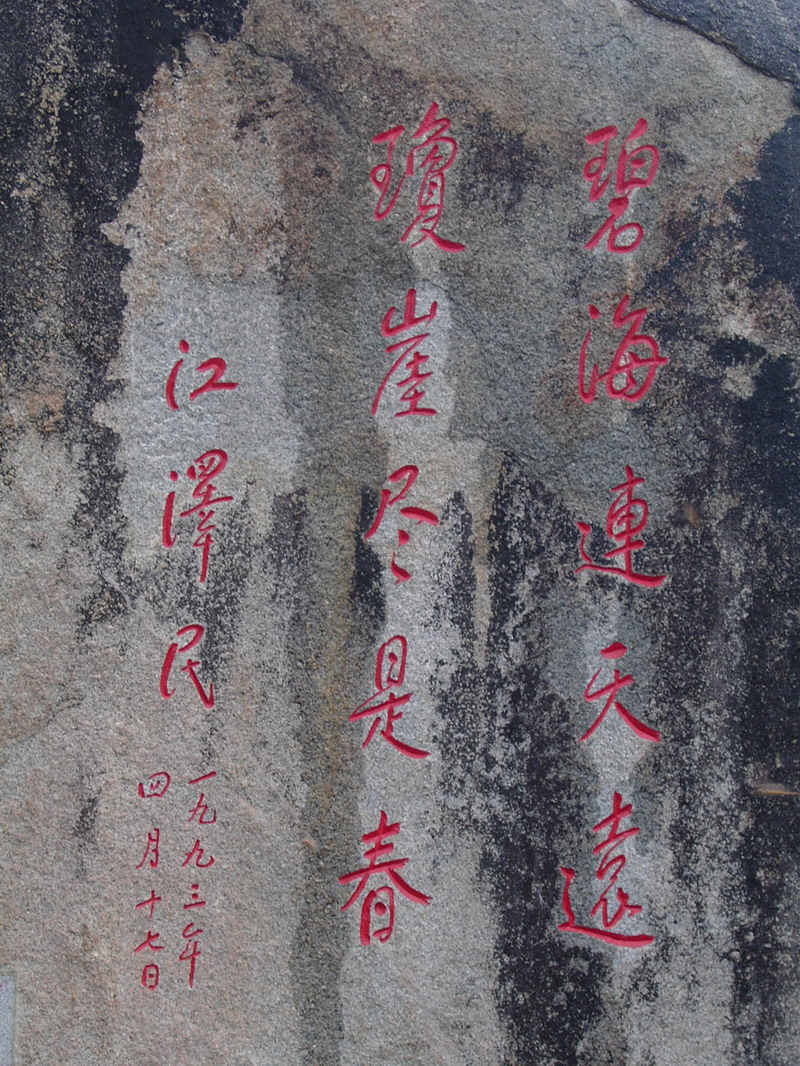 碧海連天遠
瓊崖尽是春
江澤民
一九九三年
四月十七日